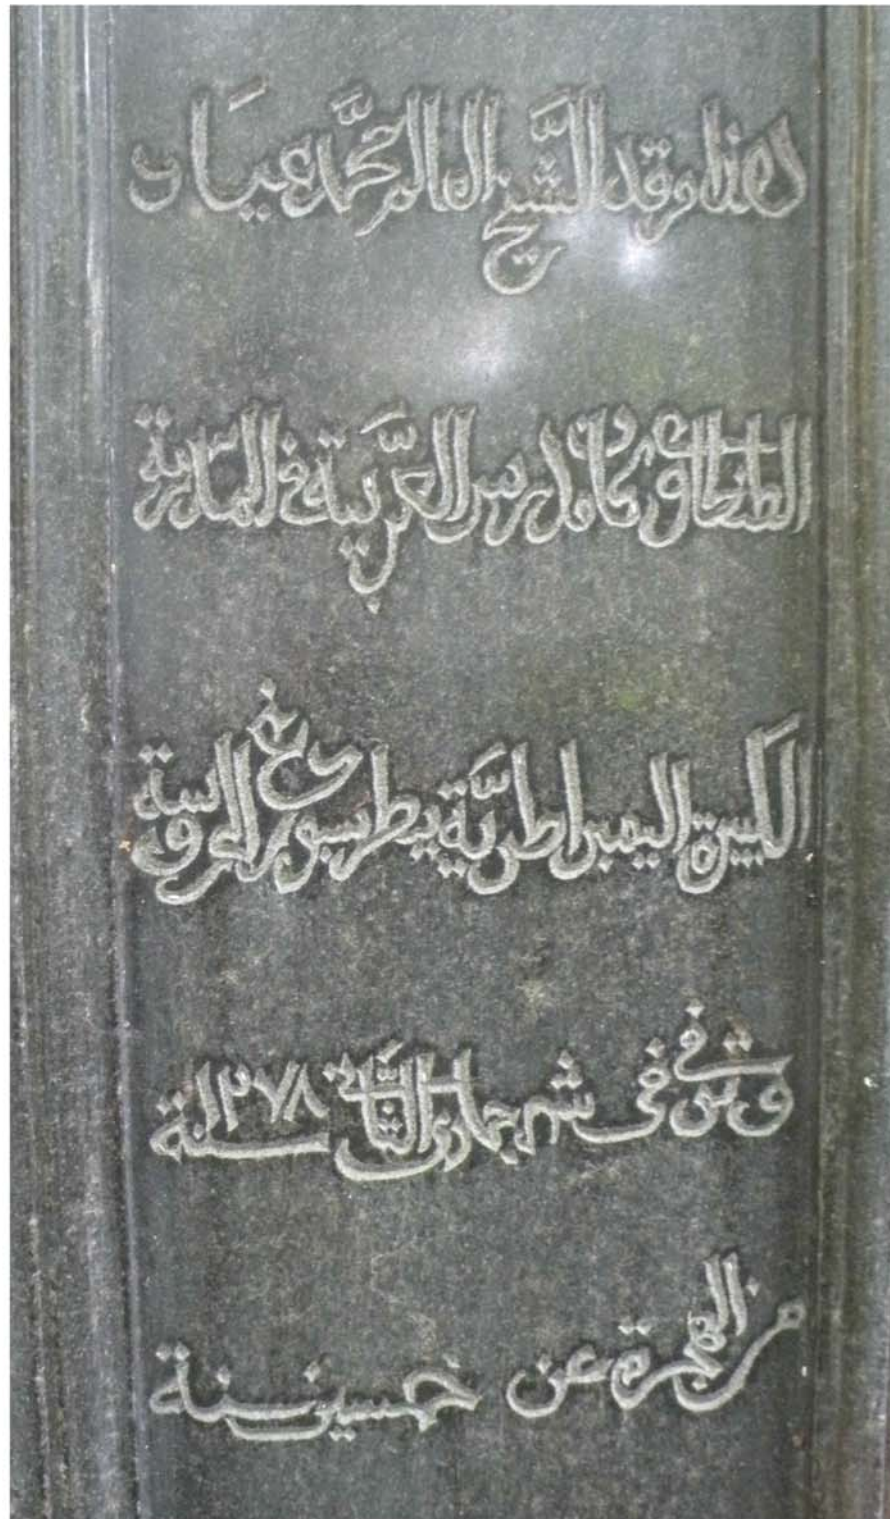 هذا مرقد الشيخ العالم محمد عياد
الطنطاوي كان مدرس العربية في المدرسة
الكبيرة اليمبراطرية بطرسبورغ الروسية
وتوفي في شهر جمادى الثاني سنة ١٢٧٨
من الهجرة عن خمسين سنة